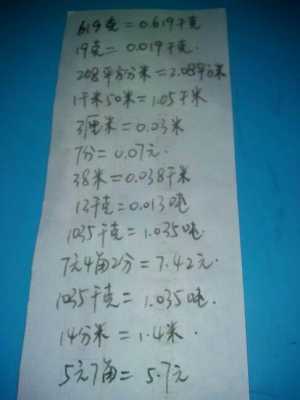 619克=0.619千克
19克=0.019千克.
208平方分米=2.08平方米
1千米50米=1.05千米
3厘米=0.03米
7分=0.07元.
38米=0.038千米
13千克=0.013吨
1035千克=1.035吨.
7元4角2分=7.42元.
1035千克=1.035吨.
14分米=1.4米.
5元7角=5.7元